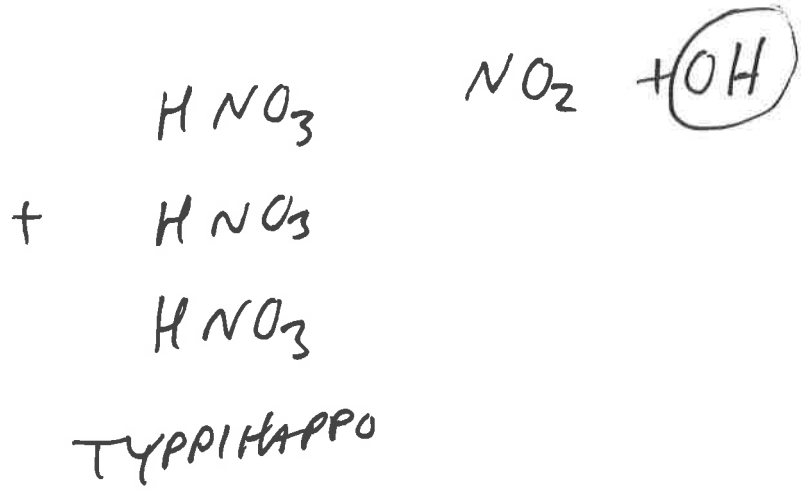 HNO₃ NO₂ + OH
+ HNO₃
HNO₃
TYPPIHAPPO